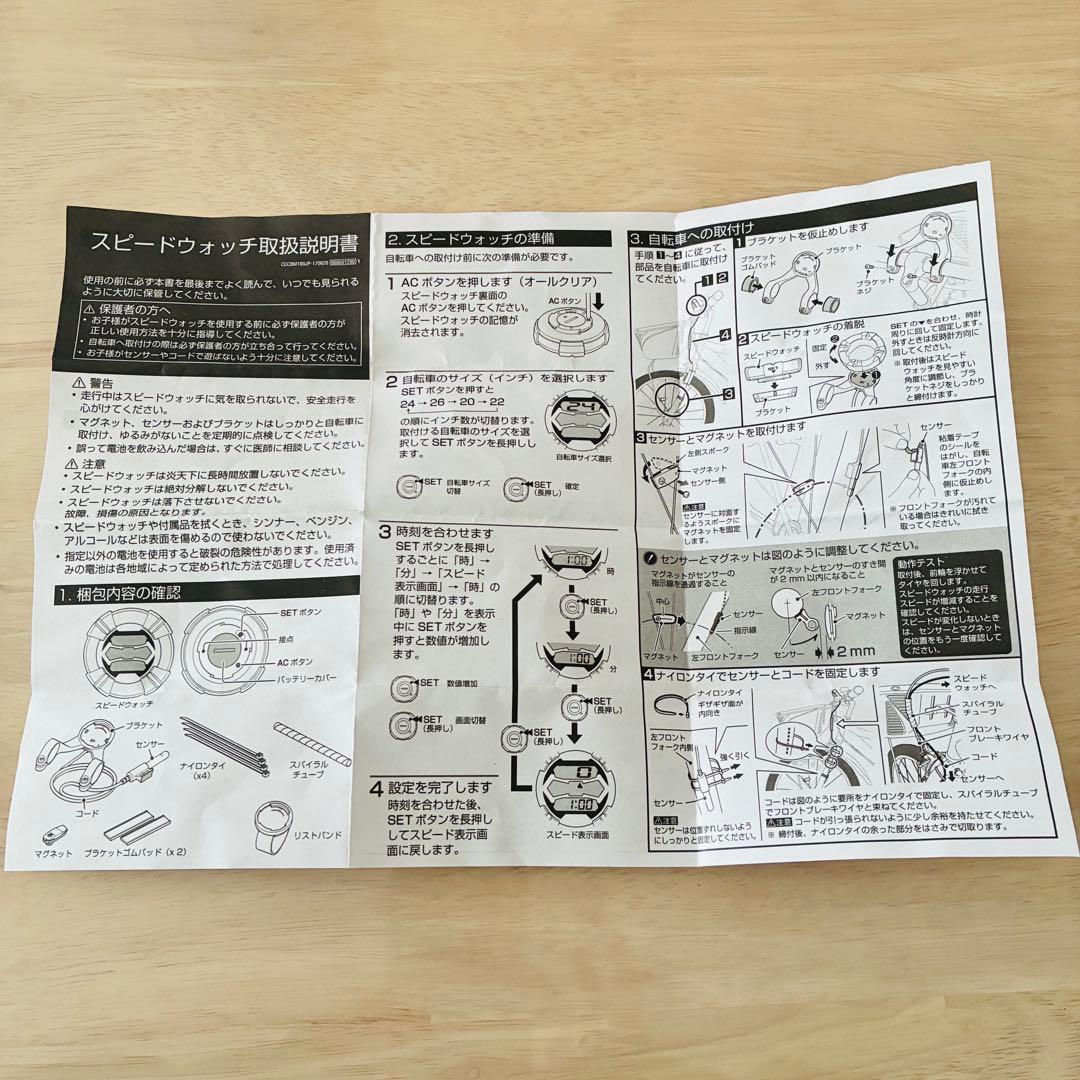 スピードウォッチ取扱説明書
使用の前に必ず本書を最後までよく読んで、いつでも見られる
ように大切に保管してください。
⚠ 保護者の方へ
・お子様がスピードウォッチを使用する前に必ず保護者の方が
正しい使用方法を十分に指導してください。
・自転車へ取付けの際は必ず保護者の方が立ち合って行ってください。
・お子様がセンサーやコードで遊ばないよう十分に注意してください。
⚠ 警告
・走行中はスピードウォッチに気を取られないで、安全走行を
心がけてください。
・マグネット、センサーおよびブラケットはしっかりと自転車に
取付け、ゆるみがないことを定期的に点検してください。
・誤って電池を飲み込んだ場合は、すぐに医師に相談してください。
⚠ 注意
・スピードウォッチは炎天下に長時間放置しないでください。
・スピードウォッチは絶対分解しないでください。
・スピードウォッチは落下させないでください。
故障、損傷の原因となります。
・スピードウォッチや付属品を拭くとき、シンナー、ベンジン、
アルコールなどは表面を傷めるので使わないでください。
・指定以外の電池を使用すると破裂の危険性があります。使用済
みの電池は各地域によって定められた方法で処理してください。
1. 梱包内容の確認
SET ボタン
接点
AC ボタン
バッテリーカバー
スピードウォッチ
ブラケット
センサー
コード
ナイロンタイ
(x4)
スパイラル
チューブ
マグネット
ブラケットゴムパッド (x 2)
リストバンド
2. スピードウォッチの準備
自転車への取付け前に次の準備が必要です。
1 AC ボタンを押します（オールクリア）
スピードウォッチ裏面の
AC ボタンを押してください。
スピードウォッチの記憶が
消去されます。
AC ボタン
2 自転車のサイズ（インチ）を選択します
SET ボタンを押すと
24 → 26 → 20 → 22
の順にインチ数が切替ります。
取付ける自転車のサイズを選
択して SET ボタンを長押しし
ます。
24
自転車サイズ選択
SET 自転車サイズ
切替
SET
(長押し) 確定
3 時刻を合わせます
SET ボタンを長押し
するごとに「時」→
「分」→「スピード
表示画面」→「時」の
順に切替ります。
「時」や「分」を表示
中に SET ボタンを
押すと数値が増加し
ます。
SET 数値増加
SET
(長押し) 画面切替
1:00
時
SET
(長押し)
1:00
分
SET
(長押し)
SET
(長押し)
0
1:00
スピード表示画面
4 設定を完了します
時刻を合わせた後、
SET ボタンを長押し
してスピード表示画
面に戻します。
3. 自転車への取付け
手順 1~4 に従って、
部品を自転車に取付け
てください。
1 2
4
3
1 ブラケットを仮止めします
ブラケット
ゴムパッド
ブラケット
ブラケット
ネジ
2 スピードウォッチの着脱
スピードウォッチ
固定
外す
ブラケット
SET の▼を合わせ、時計
周りに回して固定します。
外すときは反時計方向に
回してください。
※ 取付後はスピード
ウォッチを見やすい
角度に調節し、ブラ
ケットネジをしっかり
と締付けます。
3 センサーとマグネットを取付けます
左側スポーク
マグネット
センサー側
⚠注意
センサーに対面す
るようスポークに
マグネットを固定
します。
センサー
粘着テープ
のシールを
はがし、自転
車左フロント
フォークの内
側に仮止めし
ます。
※ フロントフォークが汚れて
いる場合はきれいに拭き
取ってください。
センサーとマグネットは図のように調整してください。
マグネットがセンサーの
指示線を通過すること
中心
センサー
指示線
マグネット
左フロントフォーク
マグネットとセンサーのすき間
が 2 mm 以内になること
左フロントフォーク
マグネット
センサー
2 mm
動作テスト
取付後、前輪を浮かせて
タイヤを回します。
スピードウォッチの走行
スピードが増減することを
確認してください。
スピードが変化しないとき
は、センサーとマグネット
の位置をもう一度確認して
ください。
4 ナイロンタイでセンサーとコードを固定します
ナイロンタイ
ギザギザ面が
内向き
左フロント
フォーク内側
強く引く
センサー
⚠注意
センサーは位置ずれしないよう
にしっかりと固定してください。
スピード
ウォッチへ
スパイラル
チューブ
フロント
ブレーキワイヤ
コード
センサーへ
コードは図のように要所をナイロンタイで固定し、スパイラルチューブ
でフロントブレーキワイヤと束ねてください。
⚠注意 コードが引っ張られないように少し余裕を持たせてください。
※ 締付後、ナイロンタイの余った部分をはさみで切取ります。